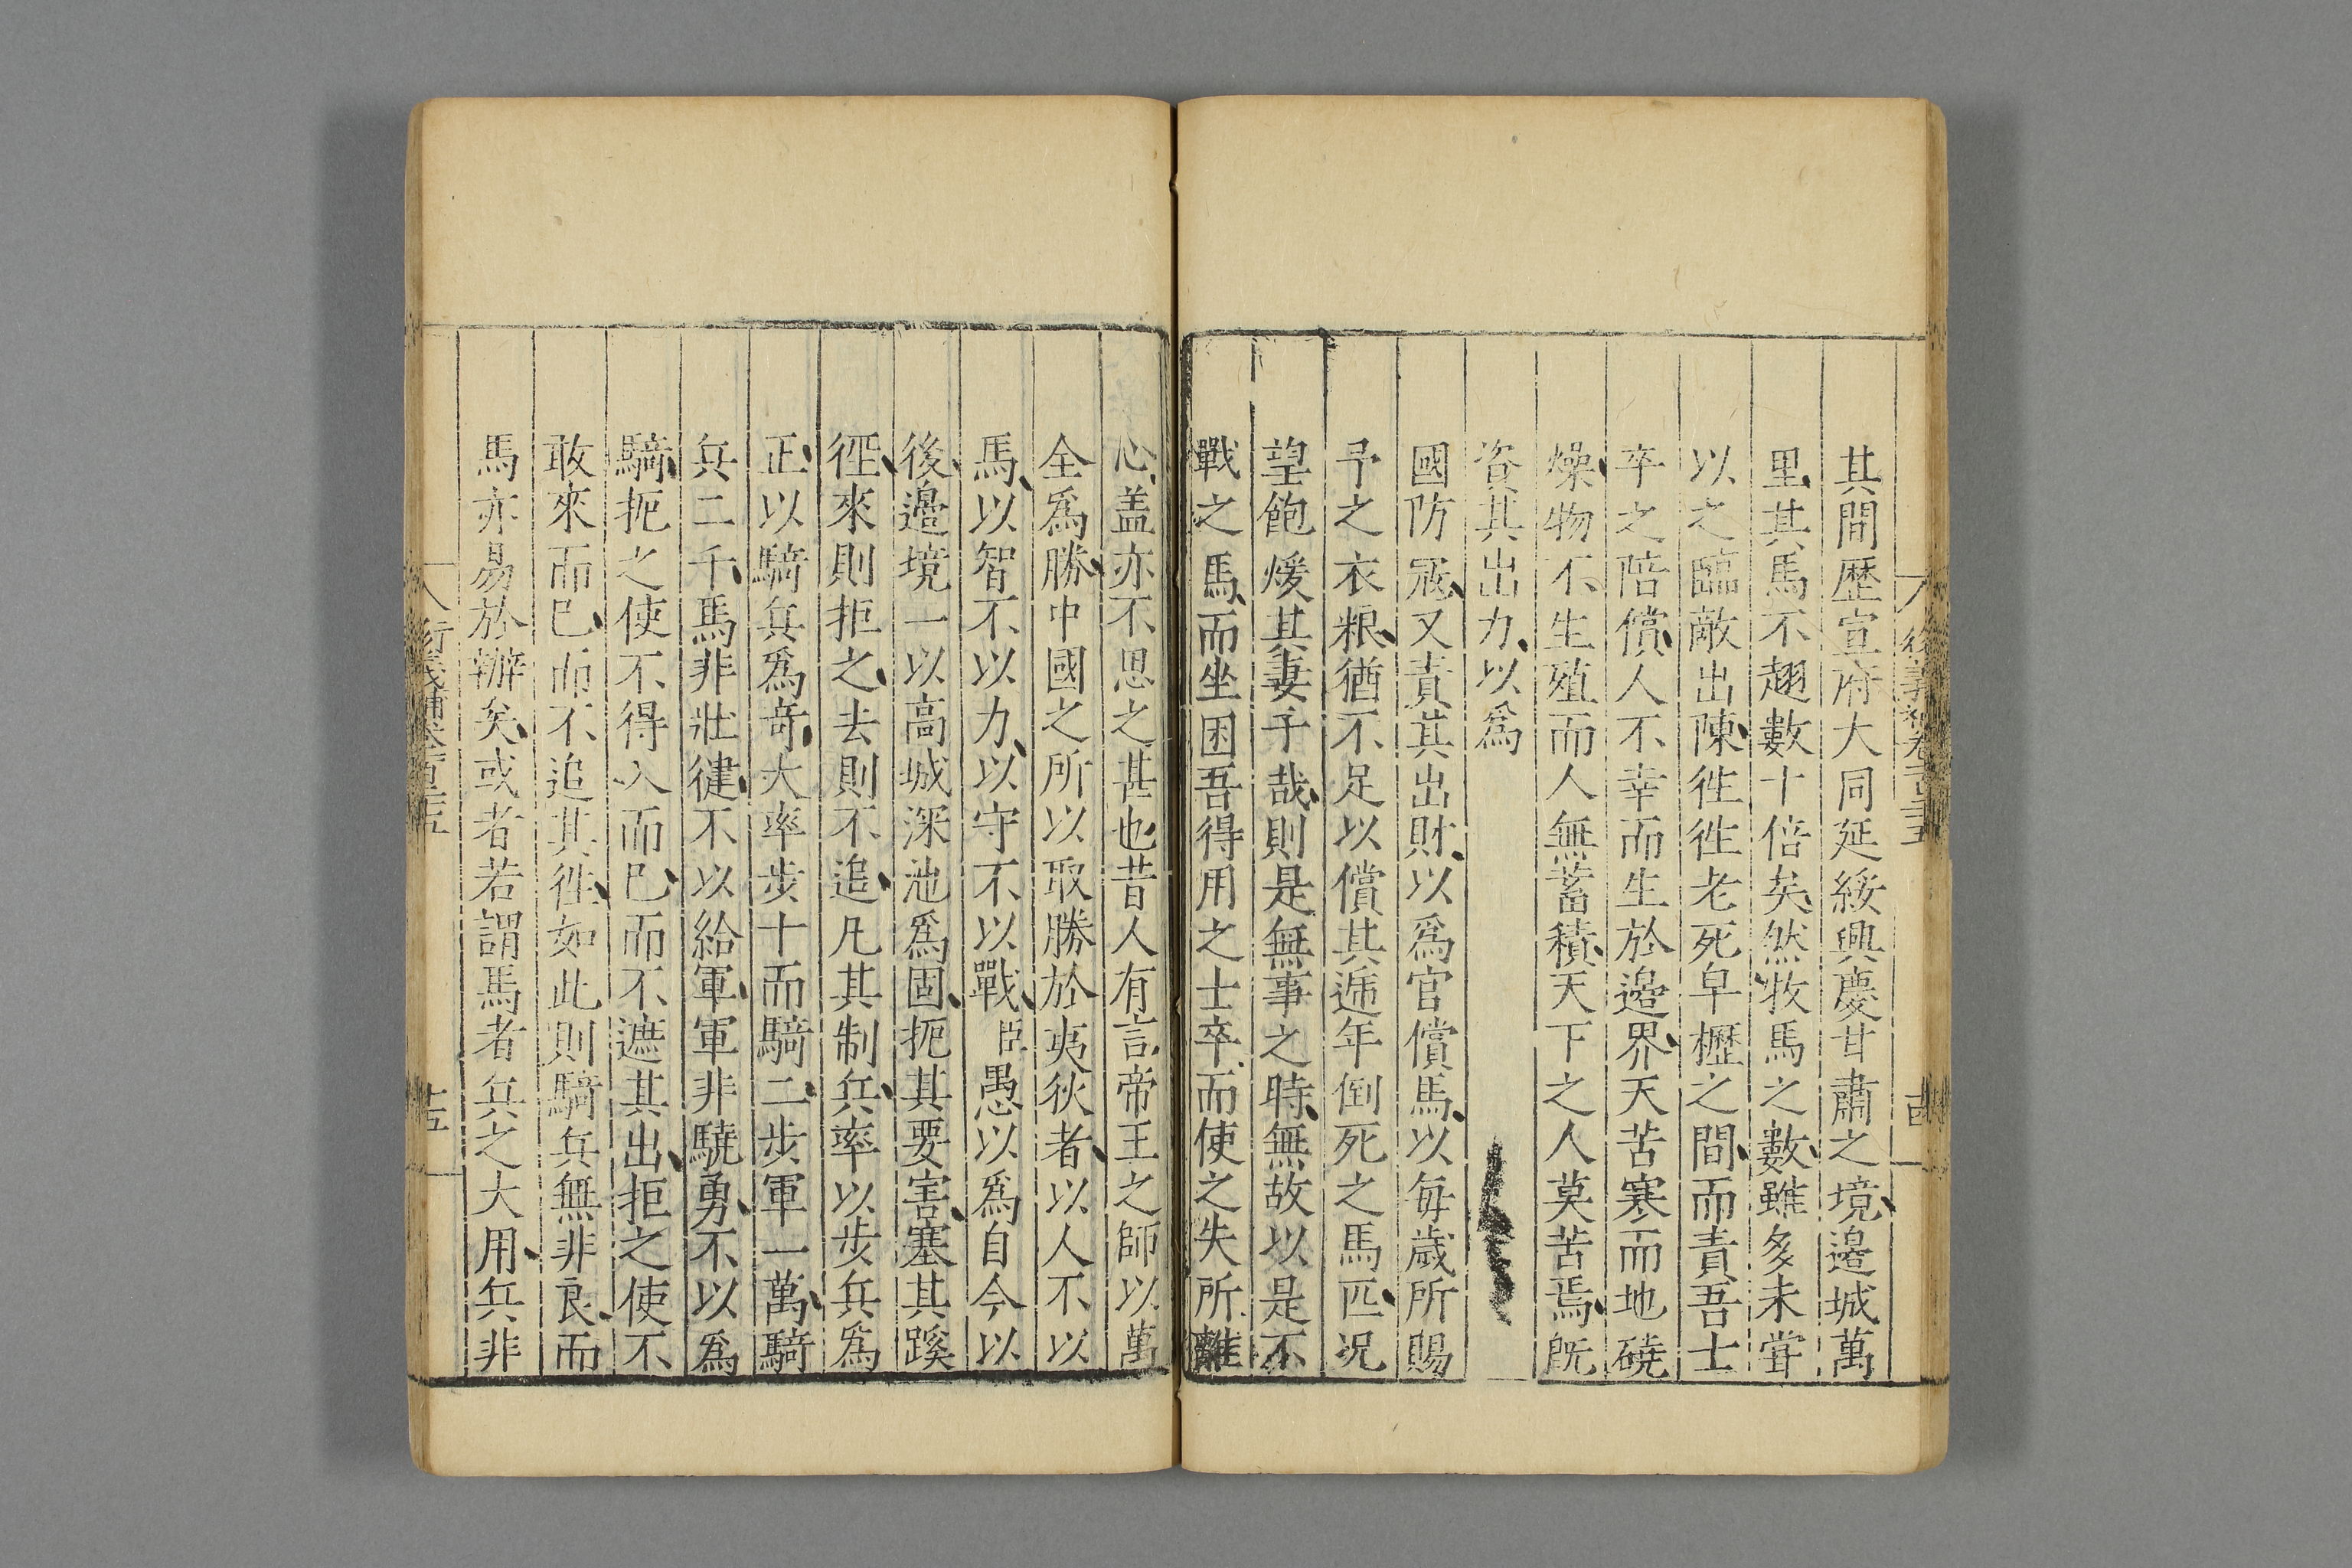 其間歷宣府大同延綏興慶甘肅之境邊城萬
里其馬不趐數十倍矣然牧馬之數雖多未甞
以之臨敵出陳徃徃老死皁櫪之間而責吾士
卒之陪償人不幸而生於邊界天苦寒而地磽
燥物不生殖而人無蓄積天下之人莫苦焉旣
資其出力以爲
國防宼又責其出財以爲官償馬以每歲所賜
予之衣粮猶不足以償其遞年倒死之馬匹况
望飽煖其妻子哉則是無事之時無故以是不
戰之馬而坐困吾得用之士卒而使之失所離
心盖亦不思之甚也昔人有言帝王之師以萬
全爲勝中國之所以取勝於夷狄者以人不以
馬以智不以力以守不以戰臣愚以爲自今以
後邊境一以高城深池爲固扼其要害塞其蹊
徑來則拒之去則不追凡其制兵率以步兵爲
正以騎兵爲奇大率步十而騎二步軍一萬騎
兵二千馬非壯健不以給軍軍非驍勇不以爲
騎扼之使不得入而已而不遮其出拒之使不
敢來而已而不追其徃如此則騎兵無非良而
馬亦易於辦矣或者若謂馬者兵之大用兵非